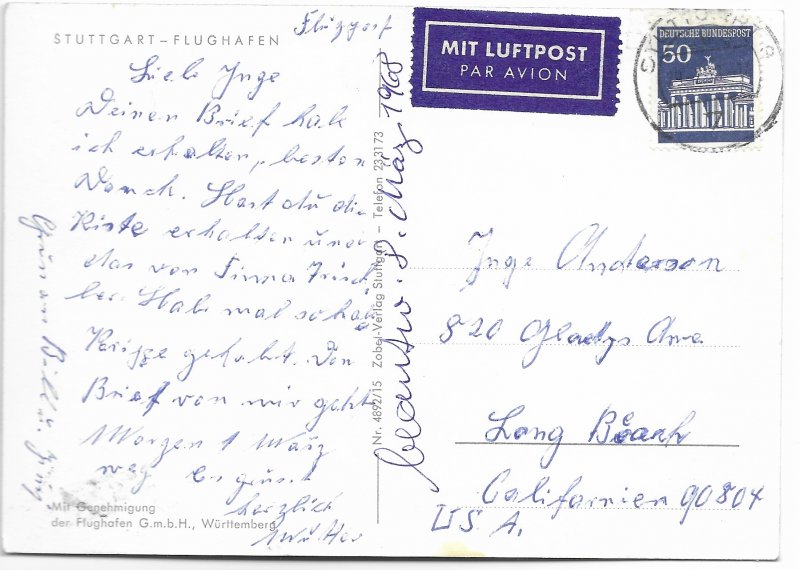 STUTTGART – FLUGHAFEN
Flugpost
Liebe Inge
Deinen Brief hab
ich erhalten, besten
Dank. Hast du die
Kiste erhalten und
das von Firma
ber. Hab mal so halb
Krippe gehabt. Den
Brief von mir geht
Morgen 1 März
weg Es grüsst
herzlich
Mutter
Gruss an Bill u.
Mit Genehmigung
der Flughafen G.m.b.H., Württemberg
Nr. 4892/15 Zobel-Verlag Stuttgart – Telefon 233173
beantw. 8. März 1968
MIT LUFTPOST
PAR AVION
DEUTSCHE BUNDESPOST
50
STUTTGART
Inge Anderson
820 Gladys Ave
Long Beach
Californien 90804
USA.